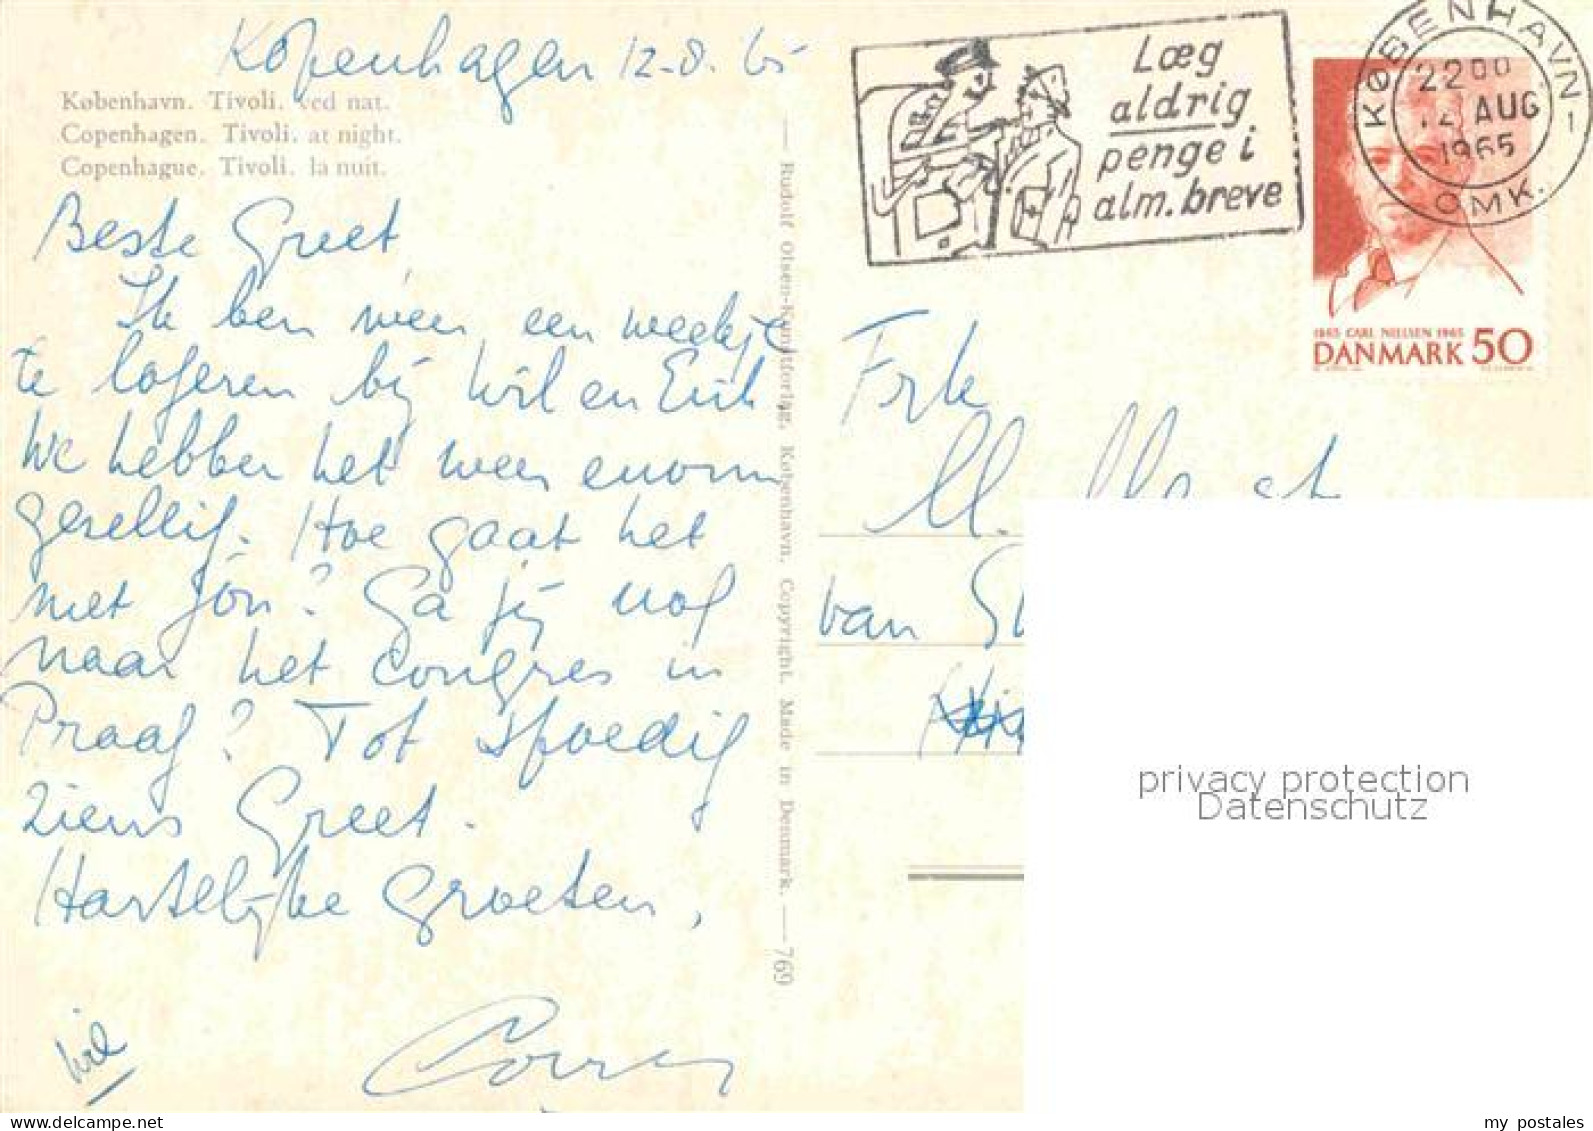 Kopenhagen 12-8-65
København. Tivoli. ved nat.
Copenhagen. Tivoli. at night.
Copenhague. Tivoli. la nuit.
Beste Greet
Ik ben weer een weekje
te logeren bij Wil en Erik
We hebben het weer enorm
gezellig. Hoe gaat het
met jou? Ga jij nog
naar het congres in
Praag? Tot spoedig
ziens Greet.
Hartelijke groeten,
Wil
Rudolf Olsen-Kunstforlag, København. Copyright. Made in Denmark. — 769
Læg
aldrig
penge i
alm. breve
KØBENHAVN
2200
12 AUG
1965
OMK.
1865 CARL NIELSEN 1965
DANMARK 50
Frk
M.
van
privacy protection
Datenschutz
my postales